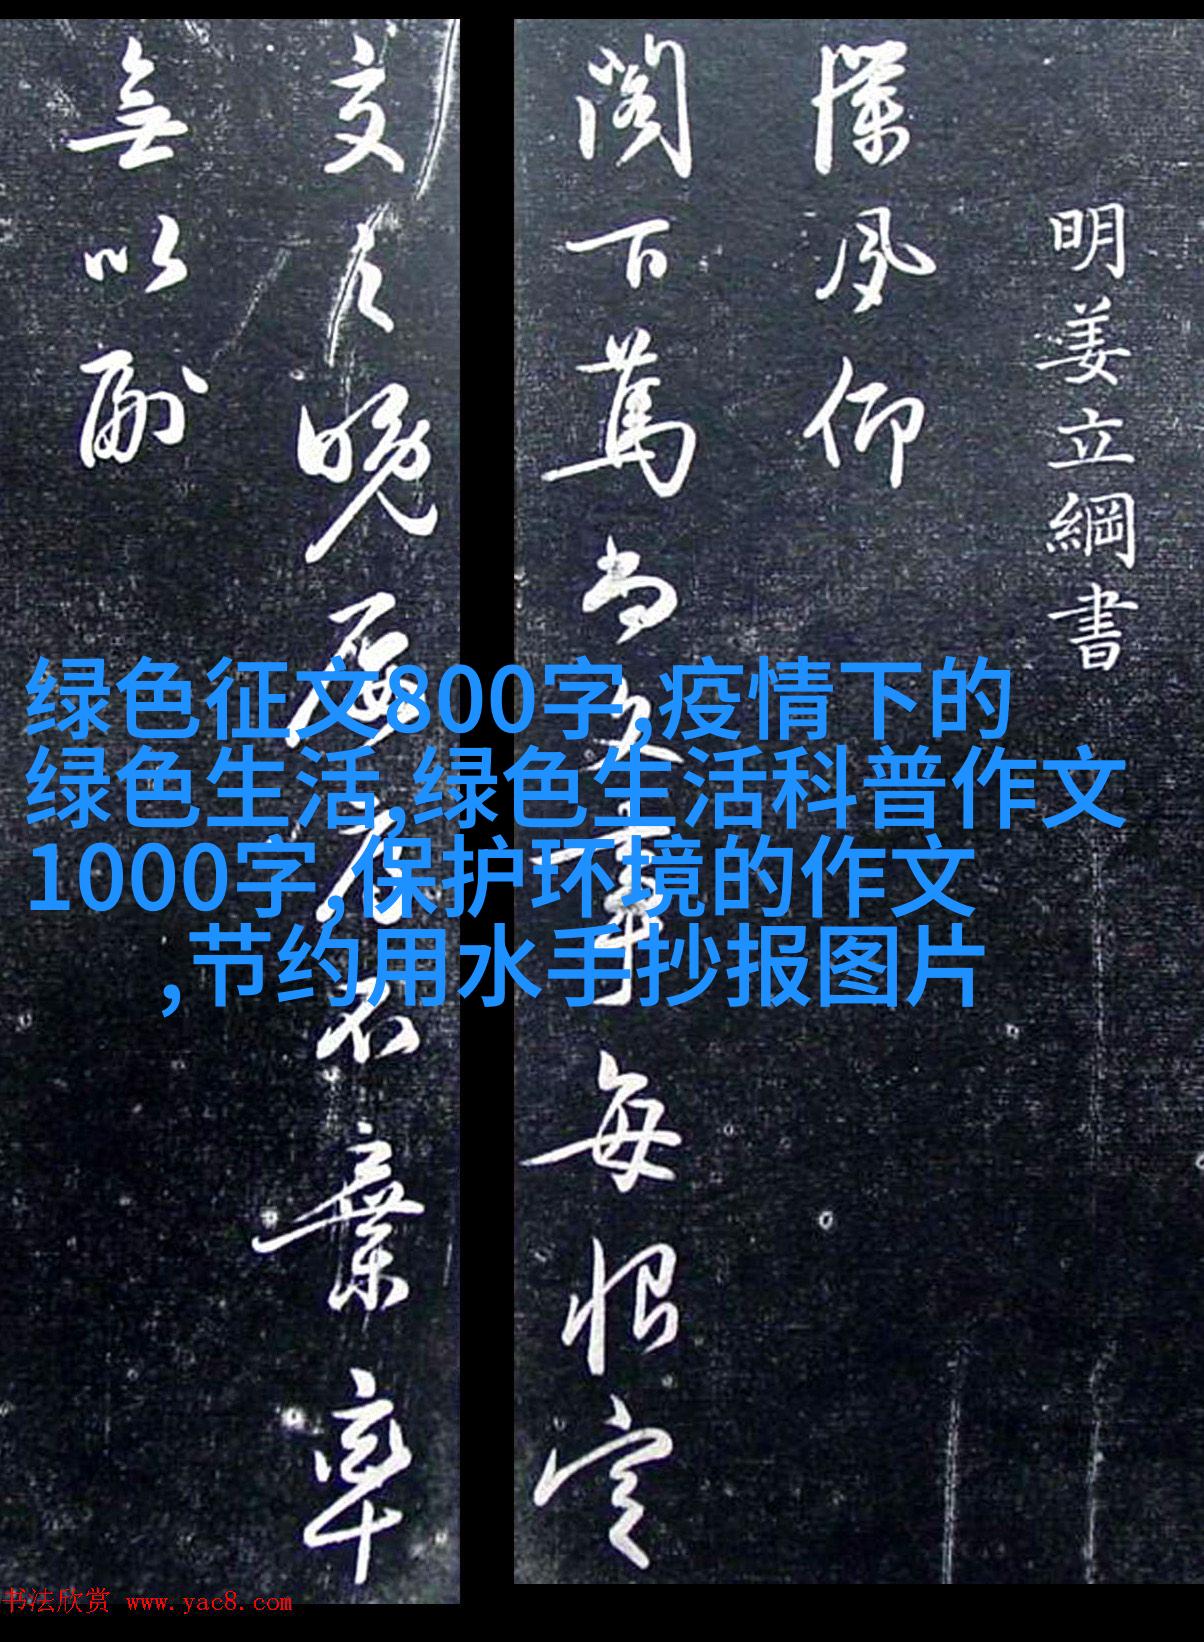 明姜立綱書
僕夙仰
閣下篤尚文事每恨定
交之晚屢辱不棄率
無以副
绿色征文800字,疫情下的
绿色生活,绿色生活科普作文
1000字,保护环境的作文
,节约用水手抄报图片
书法欣赏 www.yac8.com